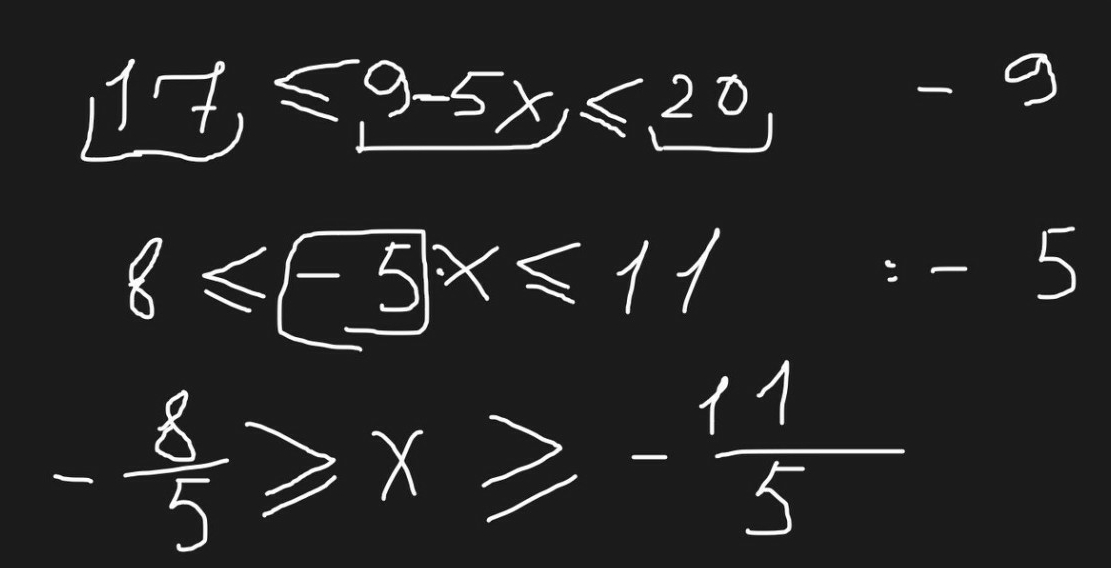 17 ≤ 9-5x ≤ 20 - 9
8 ≤ - 5·x ≤ 11 : - 5
- 8/5 ≥ x ≥ - 11/5